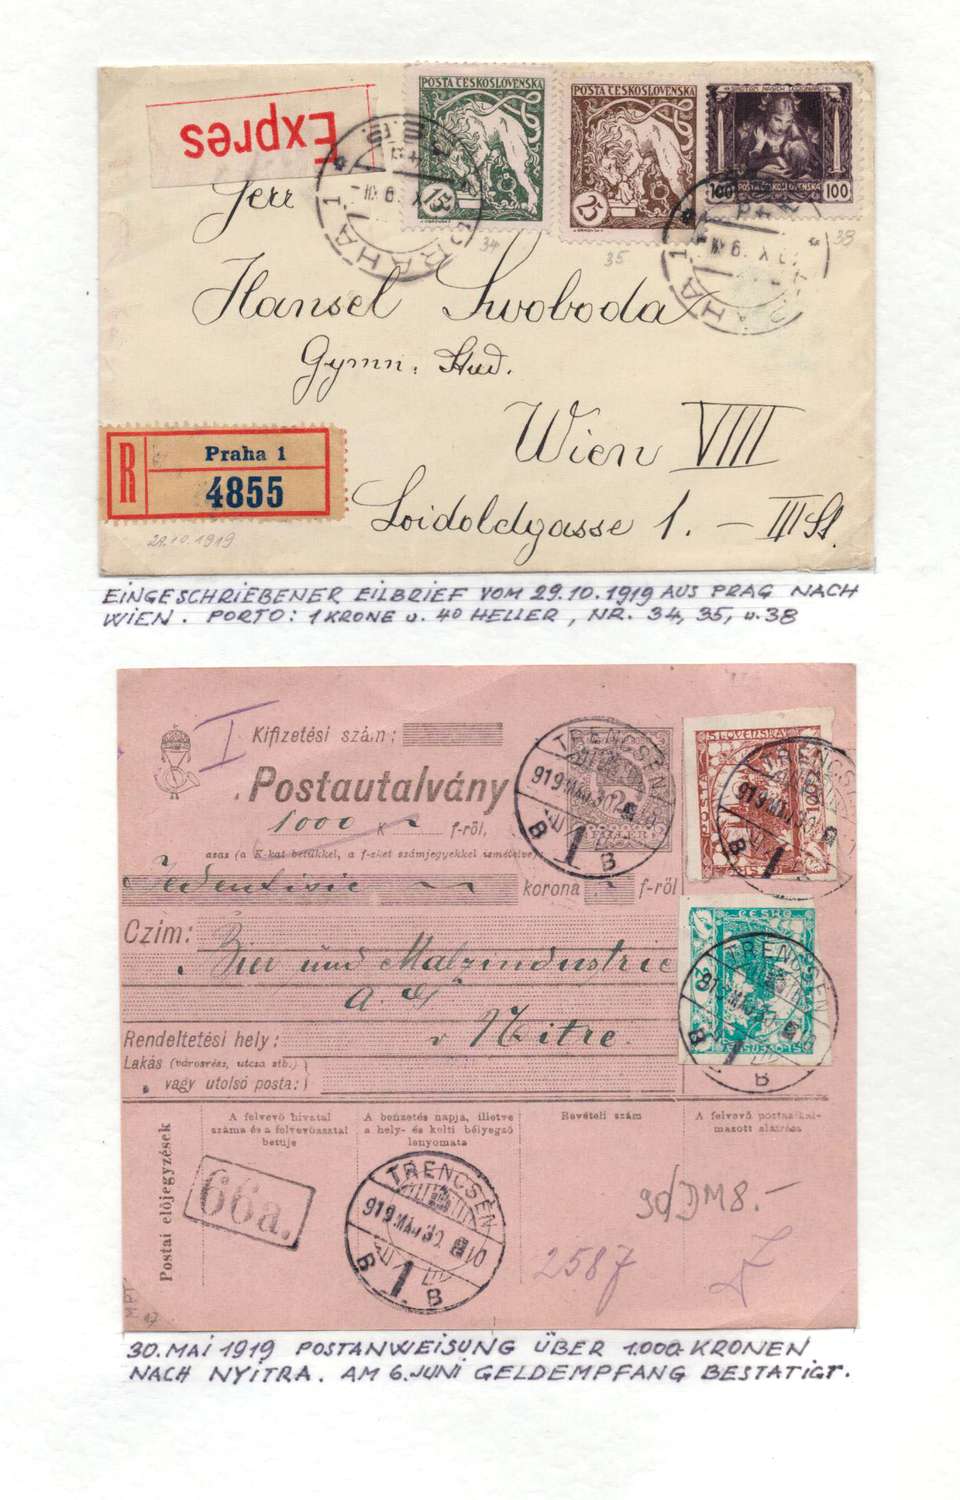 Expres
POSTA ČESKOSLOVENSKA
15
POSTA ČESKOSLOVENSKA
25
POSTA ČESKOSLOVENSKA
100 100
PRAHA 1
PRAHA 1
34
35
38
Herr
Hansel Swoboda
Gymn. Stud.
Wien VIII
Loidoldgasse 1. – III St.
R
Praha 1
4855
29.10.1919
EINGESCHRIEBENER EILBRIEF VOM 29.10.1919 AUS PRAG NACH
WIEN. PORTO: 1 KRONE u. 40 HELLER, NR. 34, 35, u. 38
I
Kifizetési szám:
Postautalvány
1000 K f-ről,
azaz (a K-kat betűkkel, a f-eket számjegyekkel ismételve)
korona f-ről
Czim:
Bier und Malzindustrie
A. G.
v Nitre
Rendeltetési hely:
Lakás (városrész, utcza stb.)
vagy utolsó posta:
TRENCSÉN
919 MÁJ 30
1
B B
TRENCSÉN
919 MÁJ 30
TRENCSÉN
919 MÁJ 30
B
Postai előjegyzések
A felvevő hivatal
száma és a felvevőasztal
betűje
A befizetés napja, illetve
a hely- és kelti bélyegző
lenyomata
Bevételi szám
A felvevő postaalkal-
mazott aláírása
66a.
TRENCSÉN
919 MÁJ 30
1
B B
2587
30. MAI 1919 POSTANWEISUNG ÜBER 1.000.- KRONEN
NACH NYITRA. AM 6. JUNI GELDEMPFANG BESTATIGT.